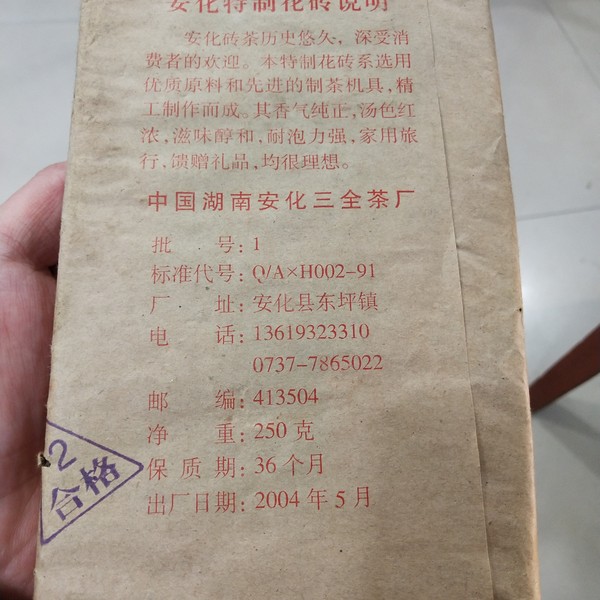 安化特制花砖说明
安化砖茶历史悠久，深受消
费者的欢迎。本特制花砖系选用
优质原料和先进的制茶机具，精
工制作而成。其香气纯正，汤色红
浓，滋味醇和，耐泡力强，家用旅
行，馈赠礼品，均很理想。
中国湖南安化三全茶厂
批 号：1
标准代号：Q/A×H002-91
厂 址：安化县东坪镇
电 话：13619323310
0737-7865022
邮 编：413504
净 重：250 克
保 质 期：36 个月
出厂日期：2004 年 5 月
2
合格